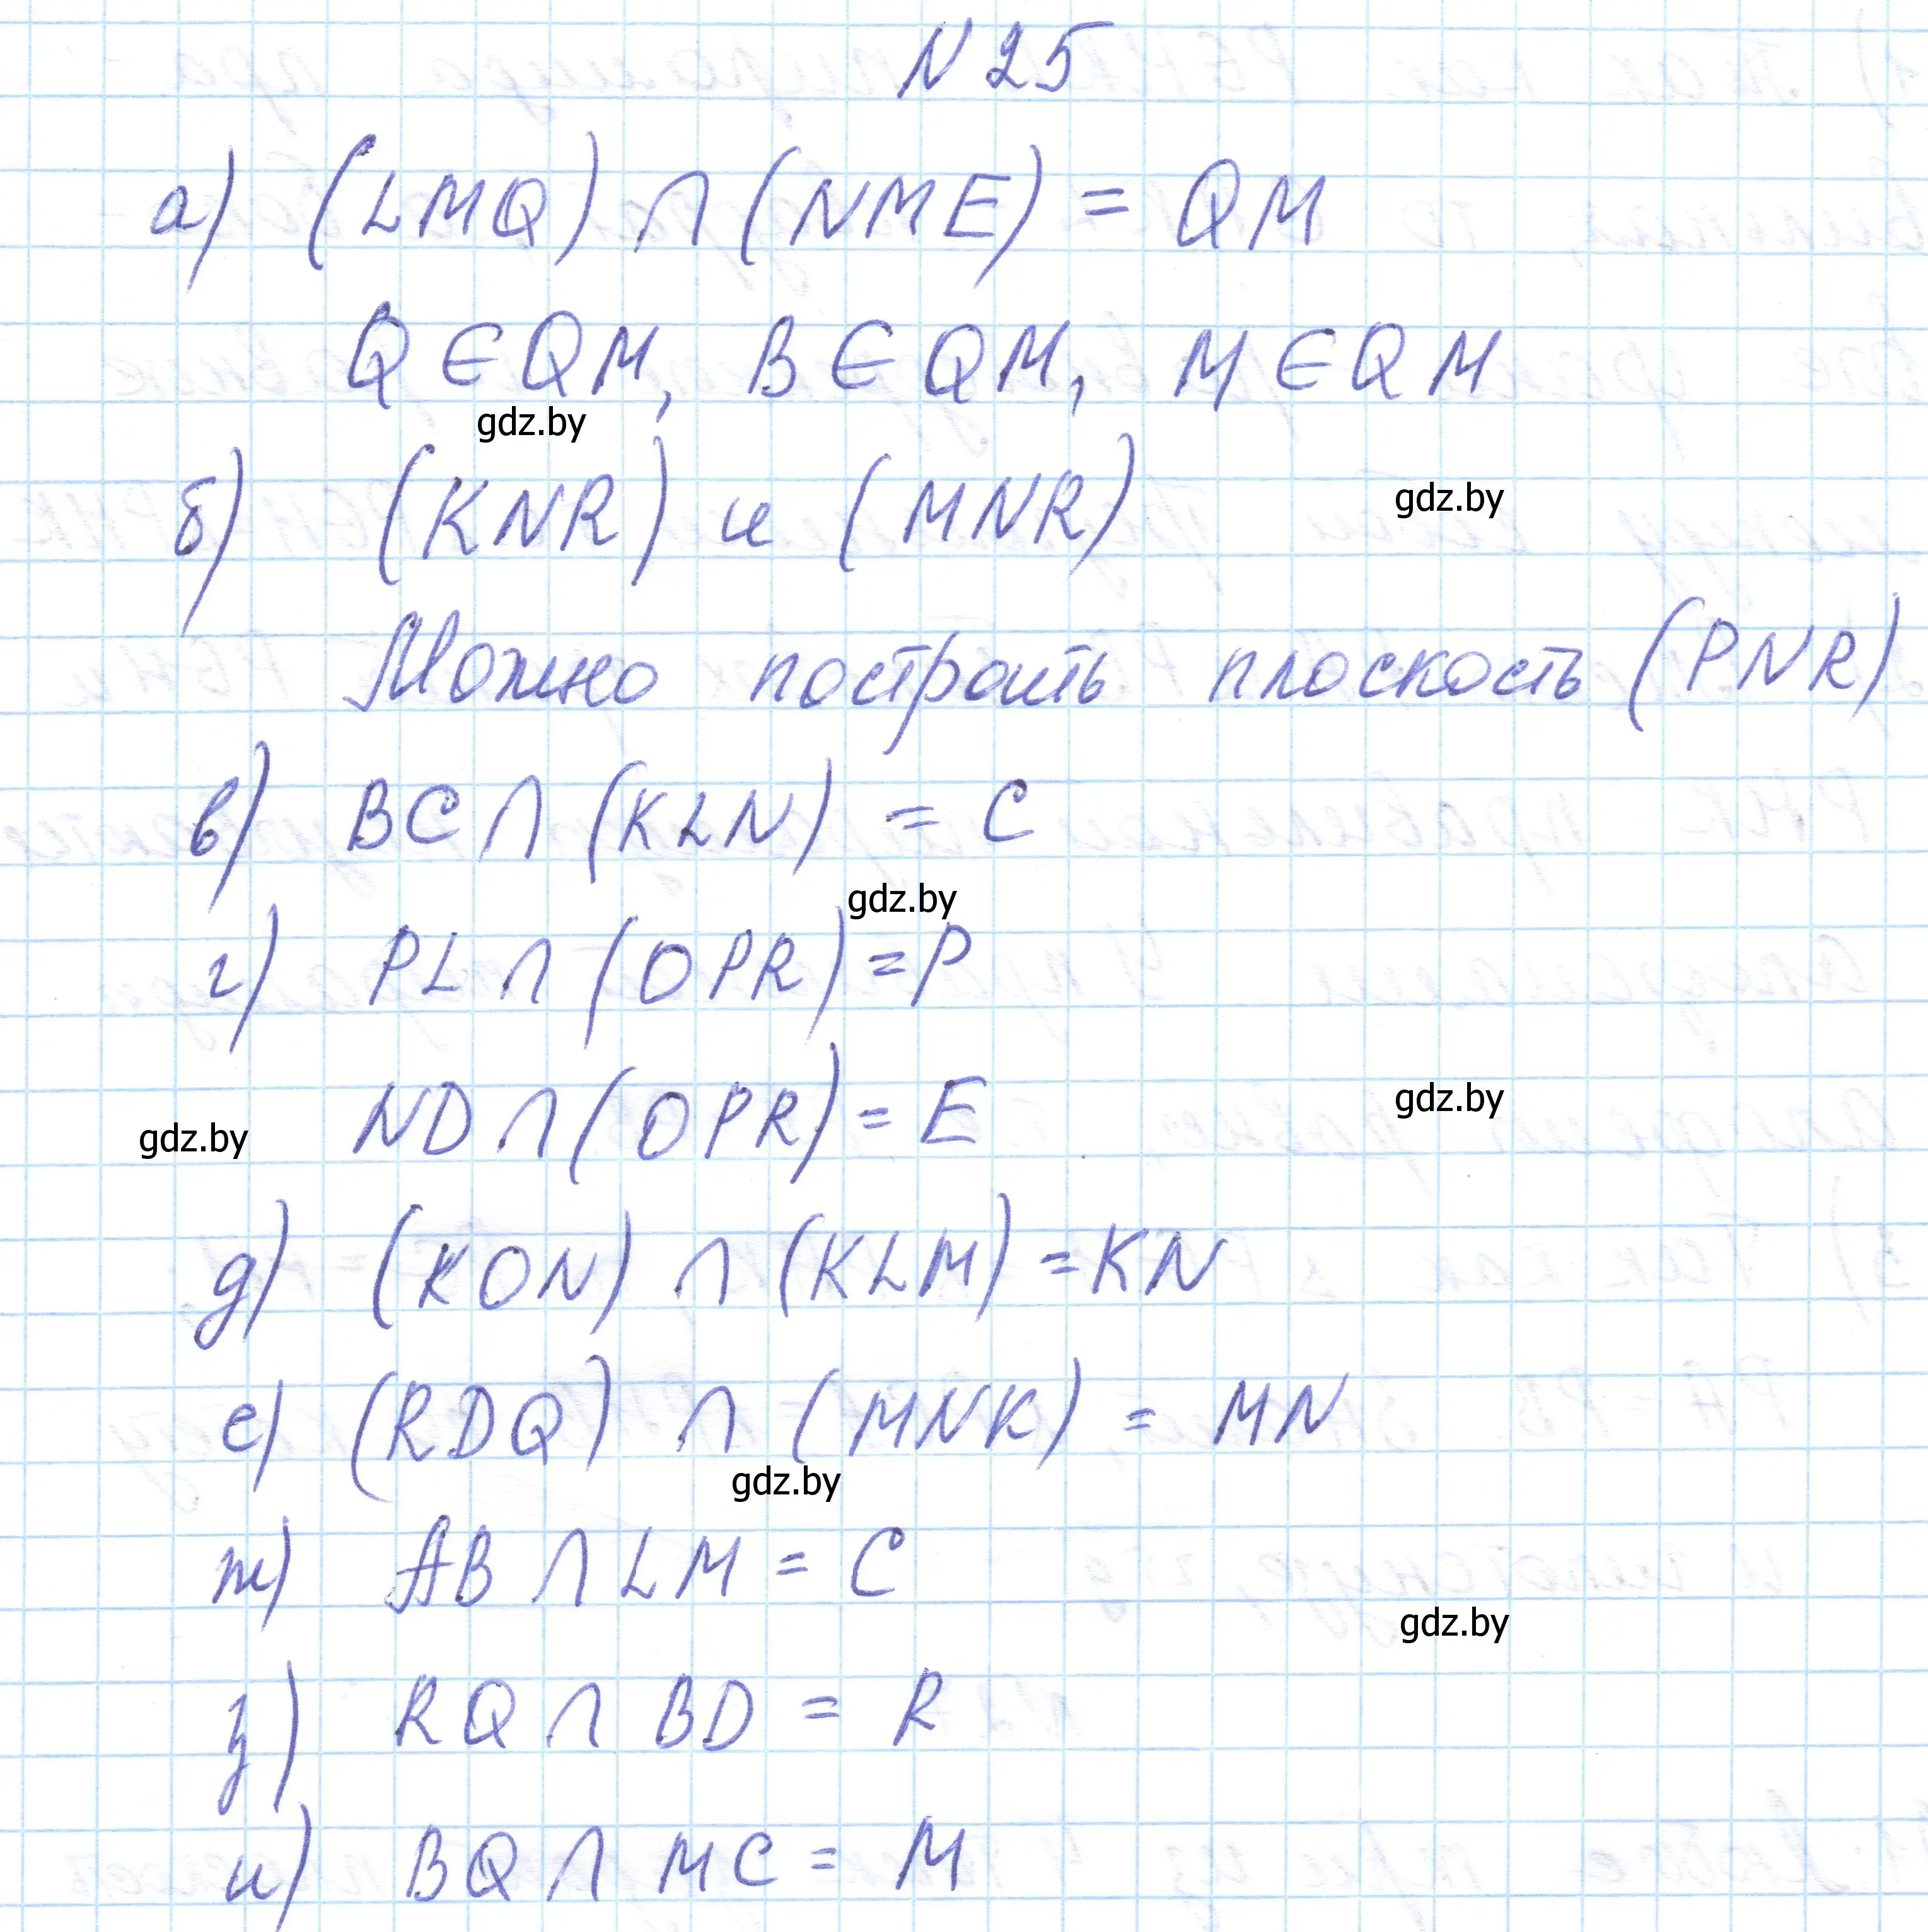 N 25
а) (LMQ) ∩ (NME) = QM
Q ∈ QM, B ∈ QM, M ∈ QM
gdz.by
б) (KNR) и (MNR)
gdz.by
Можно построить плоскость (PNR)
в) BC ∩ (KLN) = C
gdz.by
г) PL ∩ (OPR) = P
ND ∩ (OPR) = E
gdz.by
gdz.by
д) (KON) ∩ (KLM) = KN
е) (RDQ) ∩ (MNK) = MN
gdz.by
ж) AB ∩ LM = C
gdz.by
з) RQ ∩ BD = R
и) BQ ∩ MC = M